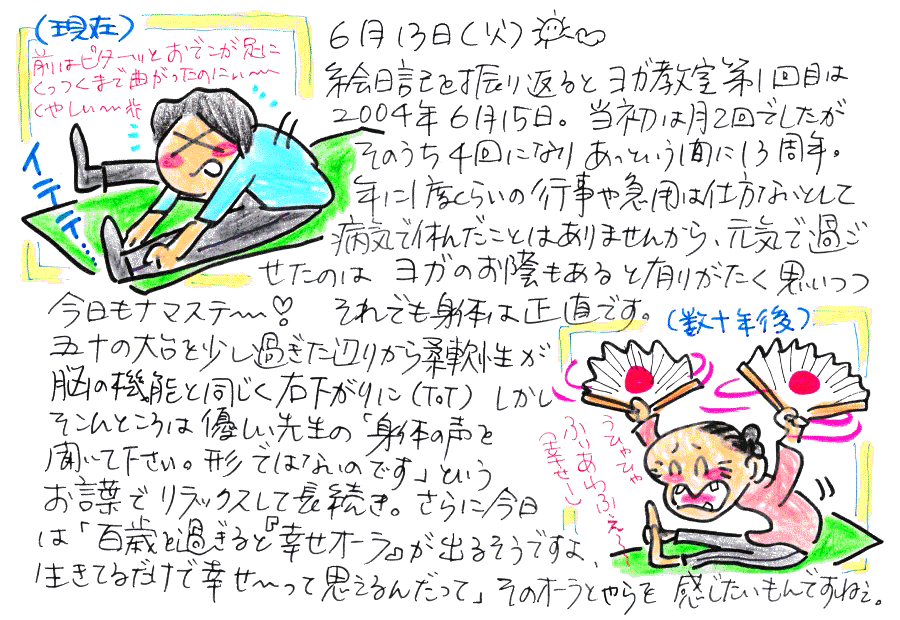 (現在)
前はピターッとおでこが足に
くっつくまで曲がったのにぃ〜〜
くやしい〜
イテテテ…
6月13日(火)
絵日記を振り返るとヨガ教室第1回目は
2004年6月15日。当初は月2回でしたが
そのうち4回になりあっという間に13周年。
年に1度くらいの行事や急用は仕方ないとして
病気で休んだことはありませんから、元気で過ご
せたのは ヨガのお陰もあると有りがたく思いつつ
今日もナマステ〜♡ それでも身体は正直です。
五十の大台を少し過ぎた辺りから柔軟性が
脳の機能と同じく右下がりに(ToT) しかし
そこんところは優しい先生の「身体の声を
聞いて下さい。形ではないのです」という
お言葉でリラックスして長続き。さらに今日
は「百歳を過ぎると『幸せオーラ』が出るそうですよ、
生きてるだけで幸せ〜って思えるんだって」そのオーラとやらを 感じたいもんですねぇ。
(数十年後)
うひゃひゃ
ふりあわふぇ〜
(幸せ〜)